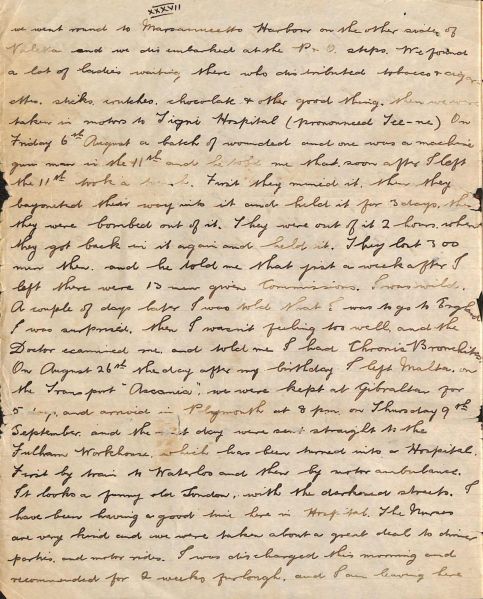 XXXVII
we went round to Marsamuscetto Harbour on the other side of
Valetta and we disembarked at the P & O. steps. We found
a lot of ladies waiting there who distributed tobacco & cigar-
ettes, sticks, crutches, chocolate & other good things. then we were
taken in motors to Tigni Hospital (pronounced Tee-ne) On
Friday 6th August a batch of wounded and one was a machine
gun man in the 11th and he told me that, soon after I left
the 11th took a First they mined it, then they
bayoneted their way into it and held it for 3 days, then
they were bombed out of it. They were out of it 2 hours, when
they got back in it again and held it. They lost 300
men then. and he told me that just a week after I
left there were 13 new given Commissions. I was wild.
A couple of days later I was told that I was to go to England
I was surprised, then I wasn't feeling too well, and the
Doctor examined me, and told me I had Chronic Bronchitis.
On August 26th the day after my birthday I left Malta, on
the Transport "Ascania", we were kept at Gibraltar for
5 days, and arrived in Plymouth at 8 pm. on Thursday 9th
September, and the next day were sent straight to the
Fulham Workhouse, which has been turned into a Hospital.
First by train to Waterloo and then by motor ambulance.
It looks a funny old London, with the darkened streets. I
have been having a good time here in Hospital. The Nurses
are very kind and we were taken about a great deal to dinner
parties, and motor rides. I was discharged this morning and
recommended for 2 weeks furlough, and I am leaving here